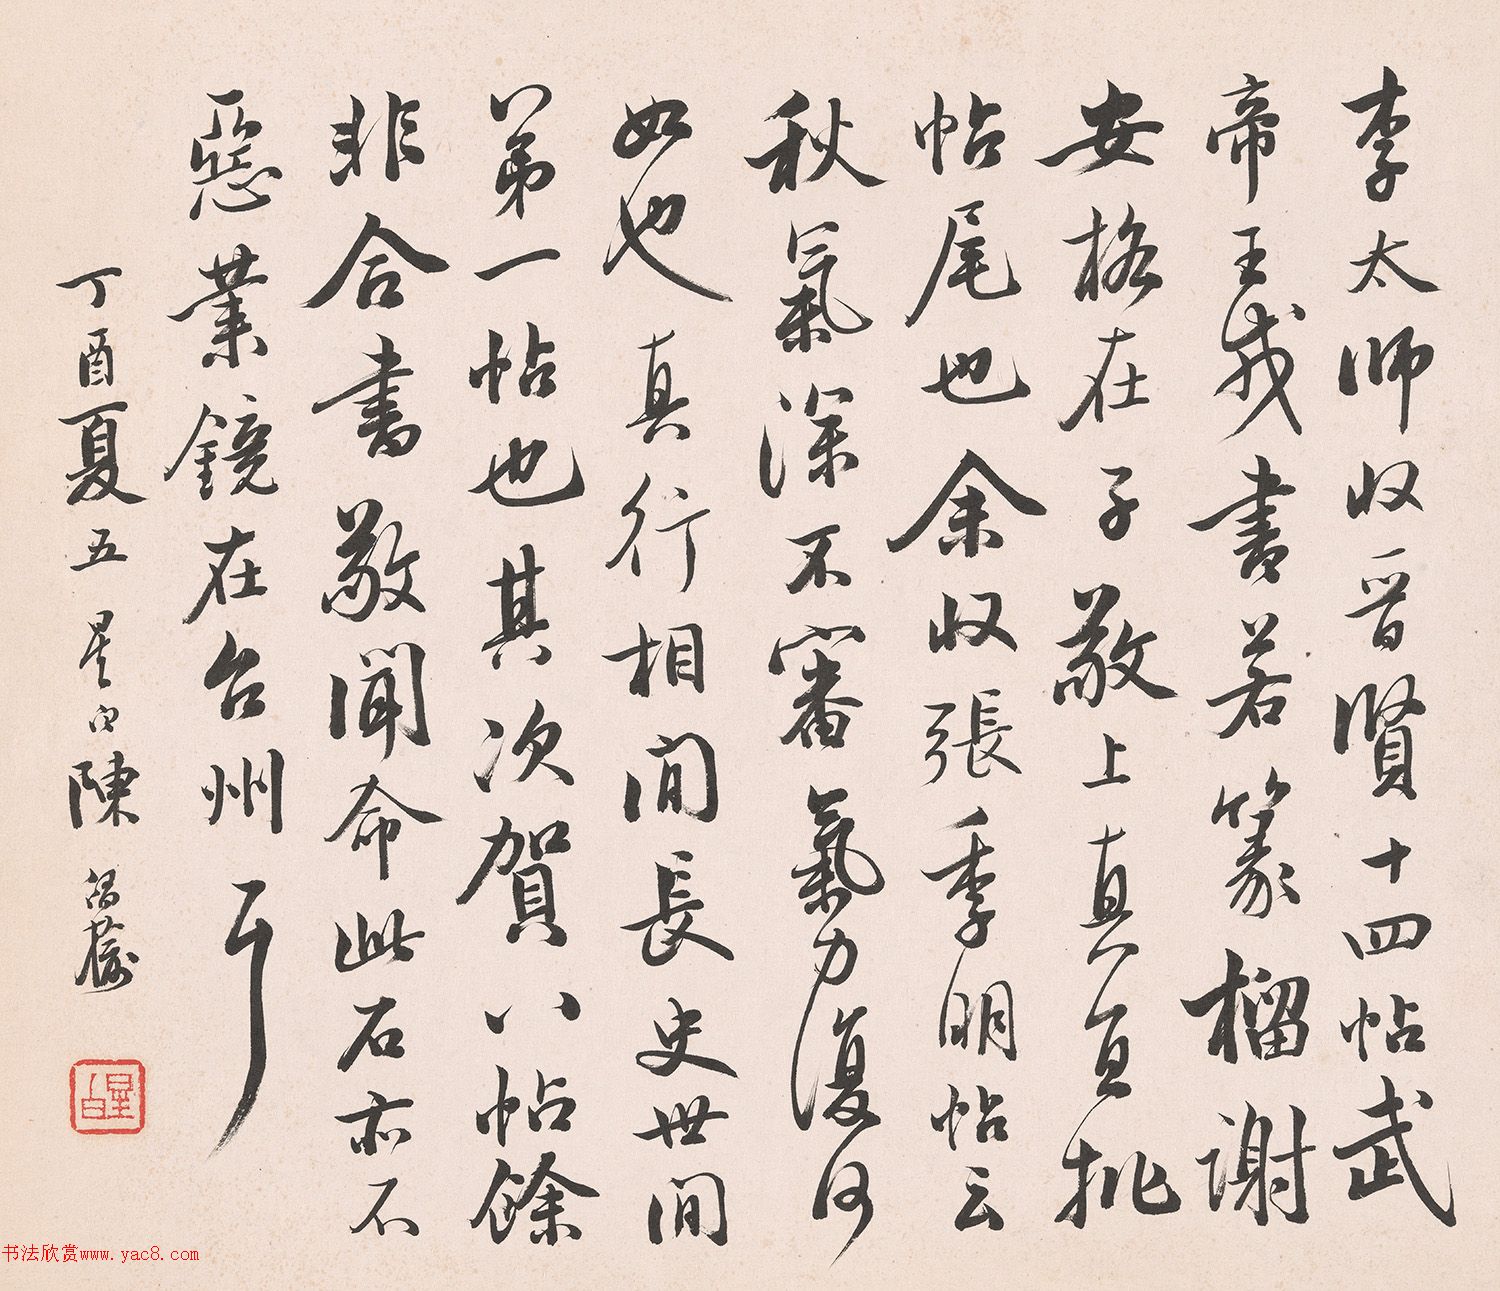 李太師收晉賢十四帖武
帝王戎書若篆榴謝
安格在子敬上真宜批
帖尾也余收張季明帖云
秋氣深不審氣力復何
如也真行相間長史世間
第一帖也其次賀八帖餘
非合書敬聞命此石亦不
惡業鏡在台州耳
丁酉夏五星白陳
星白
书法欣赏www.yac8.com